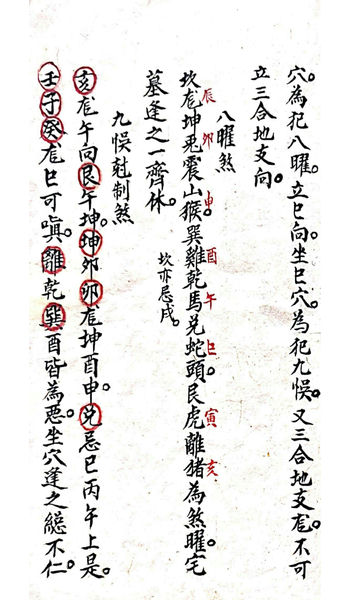 穴。為犯八曜。立巳向。坐巳穴。為犯九悮。又三合地支尨。不可
立三合地支向。
八曜煞
辰 卯 申 酉 午 巳 寅 亥
坎尨坤兎震山猴。巽雞乾馬兑蛇頭。艮虎離猪為煞曜。宅
墓逢之一齊休。
坎亦忌戌。
九悮尅制煞
亥尨午向艮午坤。坤卯卯尨坤酉申。兑忌巳丙午上是。
壬子癸尨巳可嗔。離乾巽酉皆為惡。坐穴逢之總不仁。